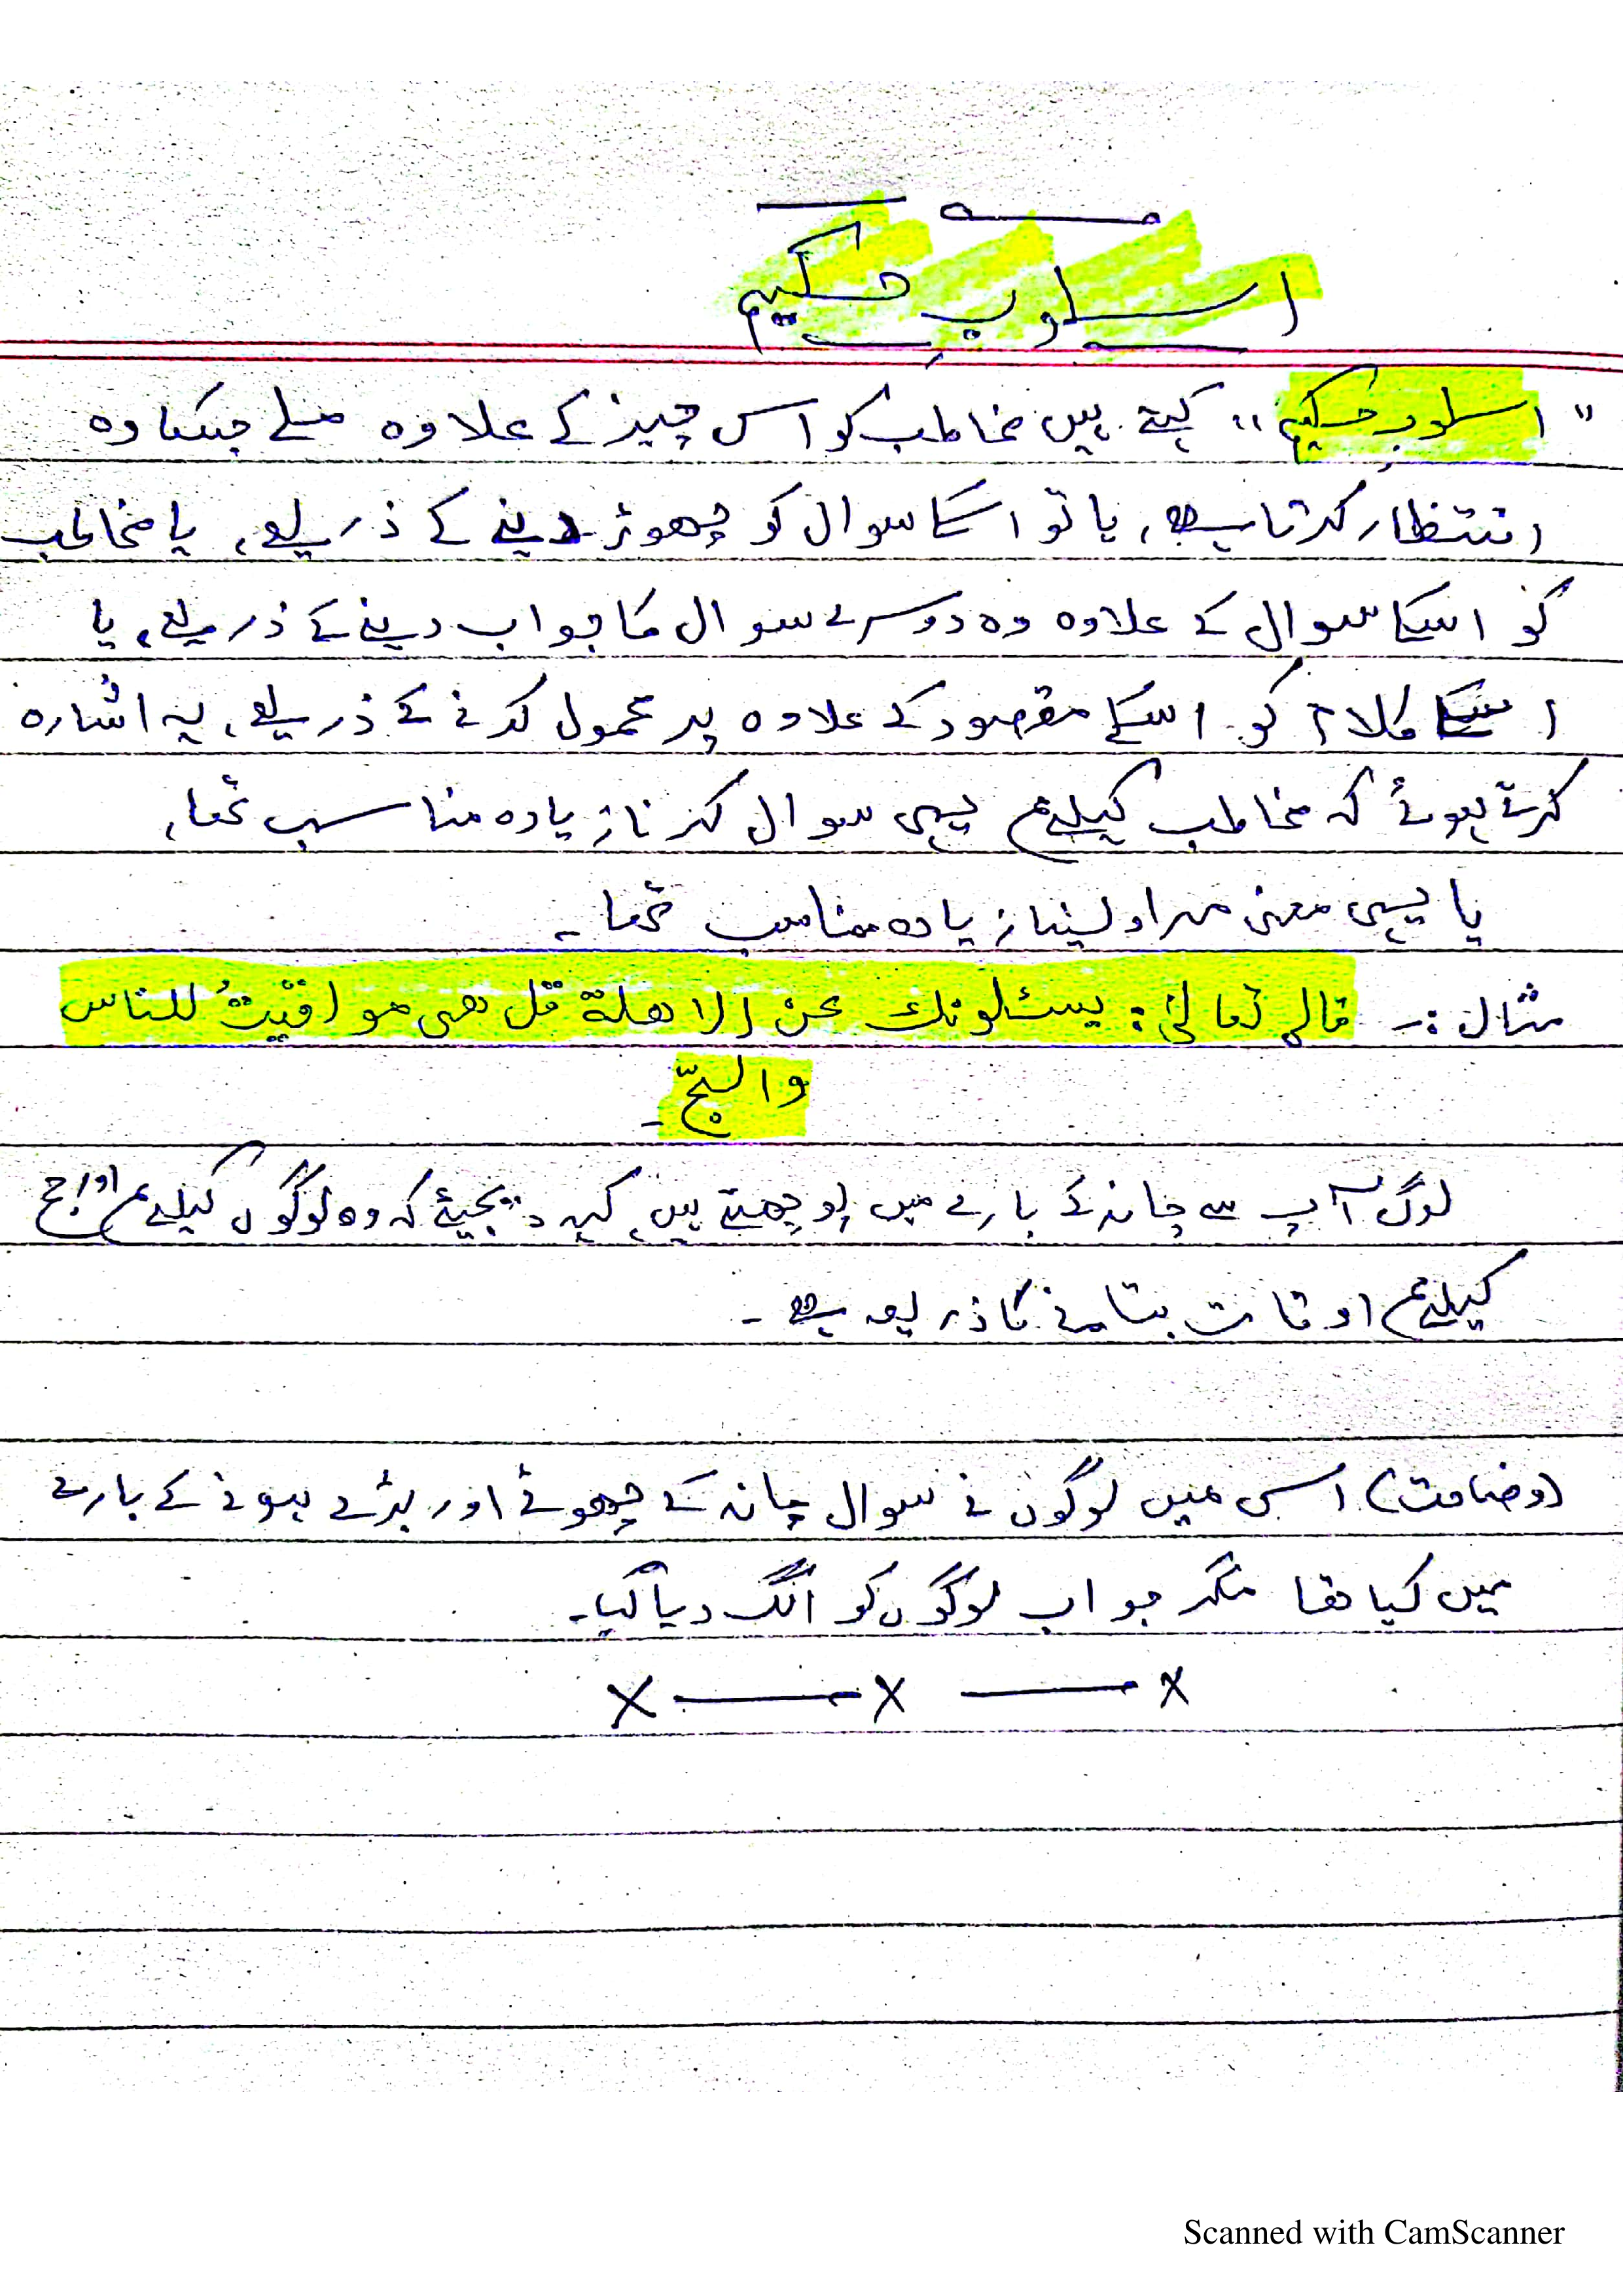 اسلوبِ حکیم
"اسلوب حکیم" کہتے ہیں مخاطب کو اس چیز کے علاوہ ملے جسکا وہ
انتظار کرتا ہے، یا تو اسکا سوال کو چھوڑ دینے کے ذریعے، یا مخاطب
کو اسکا سوال کے علاوہ وہ دوسرے سوال کا جواب دینے کے ذریعے، یا
اسکا کلام کو اسکے مقصود کے علاوہ پر محمول کرنے کے ذریعے، یہ اشارہ
کرتے ہوئے کہ مخاطب کیلئے یہی سوال کرنا زیادہ مناسب تھا،
یا یہی معنی مراد لینا زیادہ مناسب تھا۔
مثال :۔ قال تعالیٰ: یسئلونک عن الاھلة قل ھی مواقیتُ للناس
والحجّ۔
لوگ آپ سے چاند کے بارے میں پوچھتے ہیں کہہ دیجیئے کہ وہ لوگوں کیلئے اور حج
کیلئے اوقات بتانے کا ذریعہ ہے۔
(وضاحت) اسی میں لوگوں نے سوال چاند کے چھوٹے اور بڑے ہونے کے بارے
میں کیا تھا مگر جواب لوگوں کو الگ دیا گیا۔
x — x — x
Scanned with CamScanner